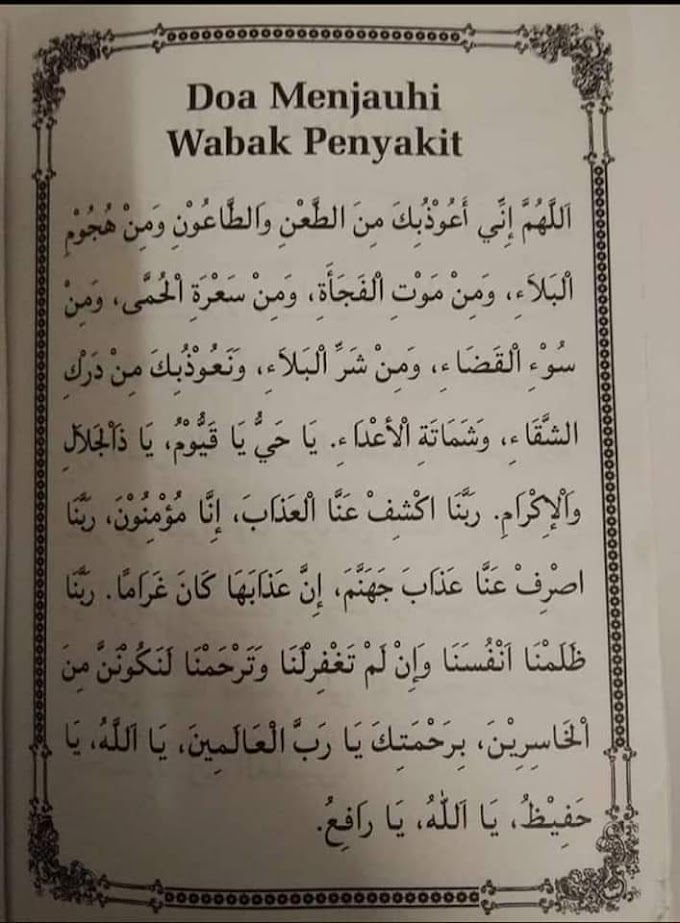 Doa Menjauhi
Wabak Penyakit
اَللَّهُمَّ إِنِّي أَعُوْذُبِكَ مِنَ الطَّعْنِ وَالطَّاعُوْنِ وَمِنْ هُجُوْمِ
الْبَلَاءِ، وَمِنْ مَوْتِ الْفَجَأَةِ، وَمِنْ سَعْرَةِ الْحُمَّى، وَمِنْ
سُوْءِ الْقَضَاءِ، وَمِنْ شَرِّ الْبَلَاءِ، وَنَعُوْذُبِكَ مِنْ دَرَكِ
الشَّقَاءِ، وَشَمَاتَةِ الْأَعْدَاءِ. يَا حَيُّ يَا قَيُّوْمُ، يَا ذَالْجَلَالِ
وَالْإِكْرَامِ. رَبَّنَا اكْشِفْ عَنَّا الْعَذَابَ، إِنَّا مُؤْمِنُوْنَ، رَبَّنَا
اصْرِفْ عَنَّا عَذَابَ جَهَنَّمَ، إِنَّ عَذَابَهَا كَانَ غَرَامًا. رَبَّنَا
ظَلَمْنَا اَنْفُسَنَا وَإِنْ لَمْ تَغْفِرْلَنَا وَتَرْحَمْنَا لَنَكُوْنَنَّ مِنَ
الْخَاسِرِيْنَ، بِرَحْمَتِكَ يَا رَبَّ الْعَالَمِينَ، يَا اَللَّهُ، يَا
حَفِيْظُ، يَا اَللهُ، يَا رَافِعُ.